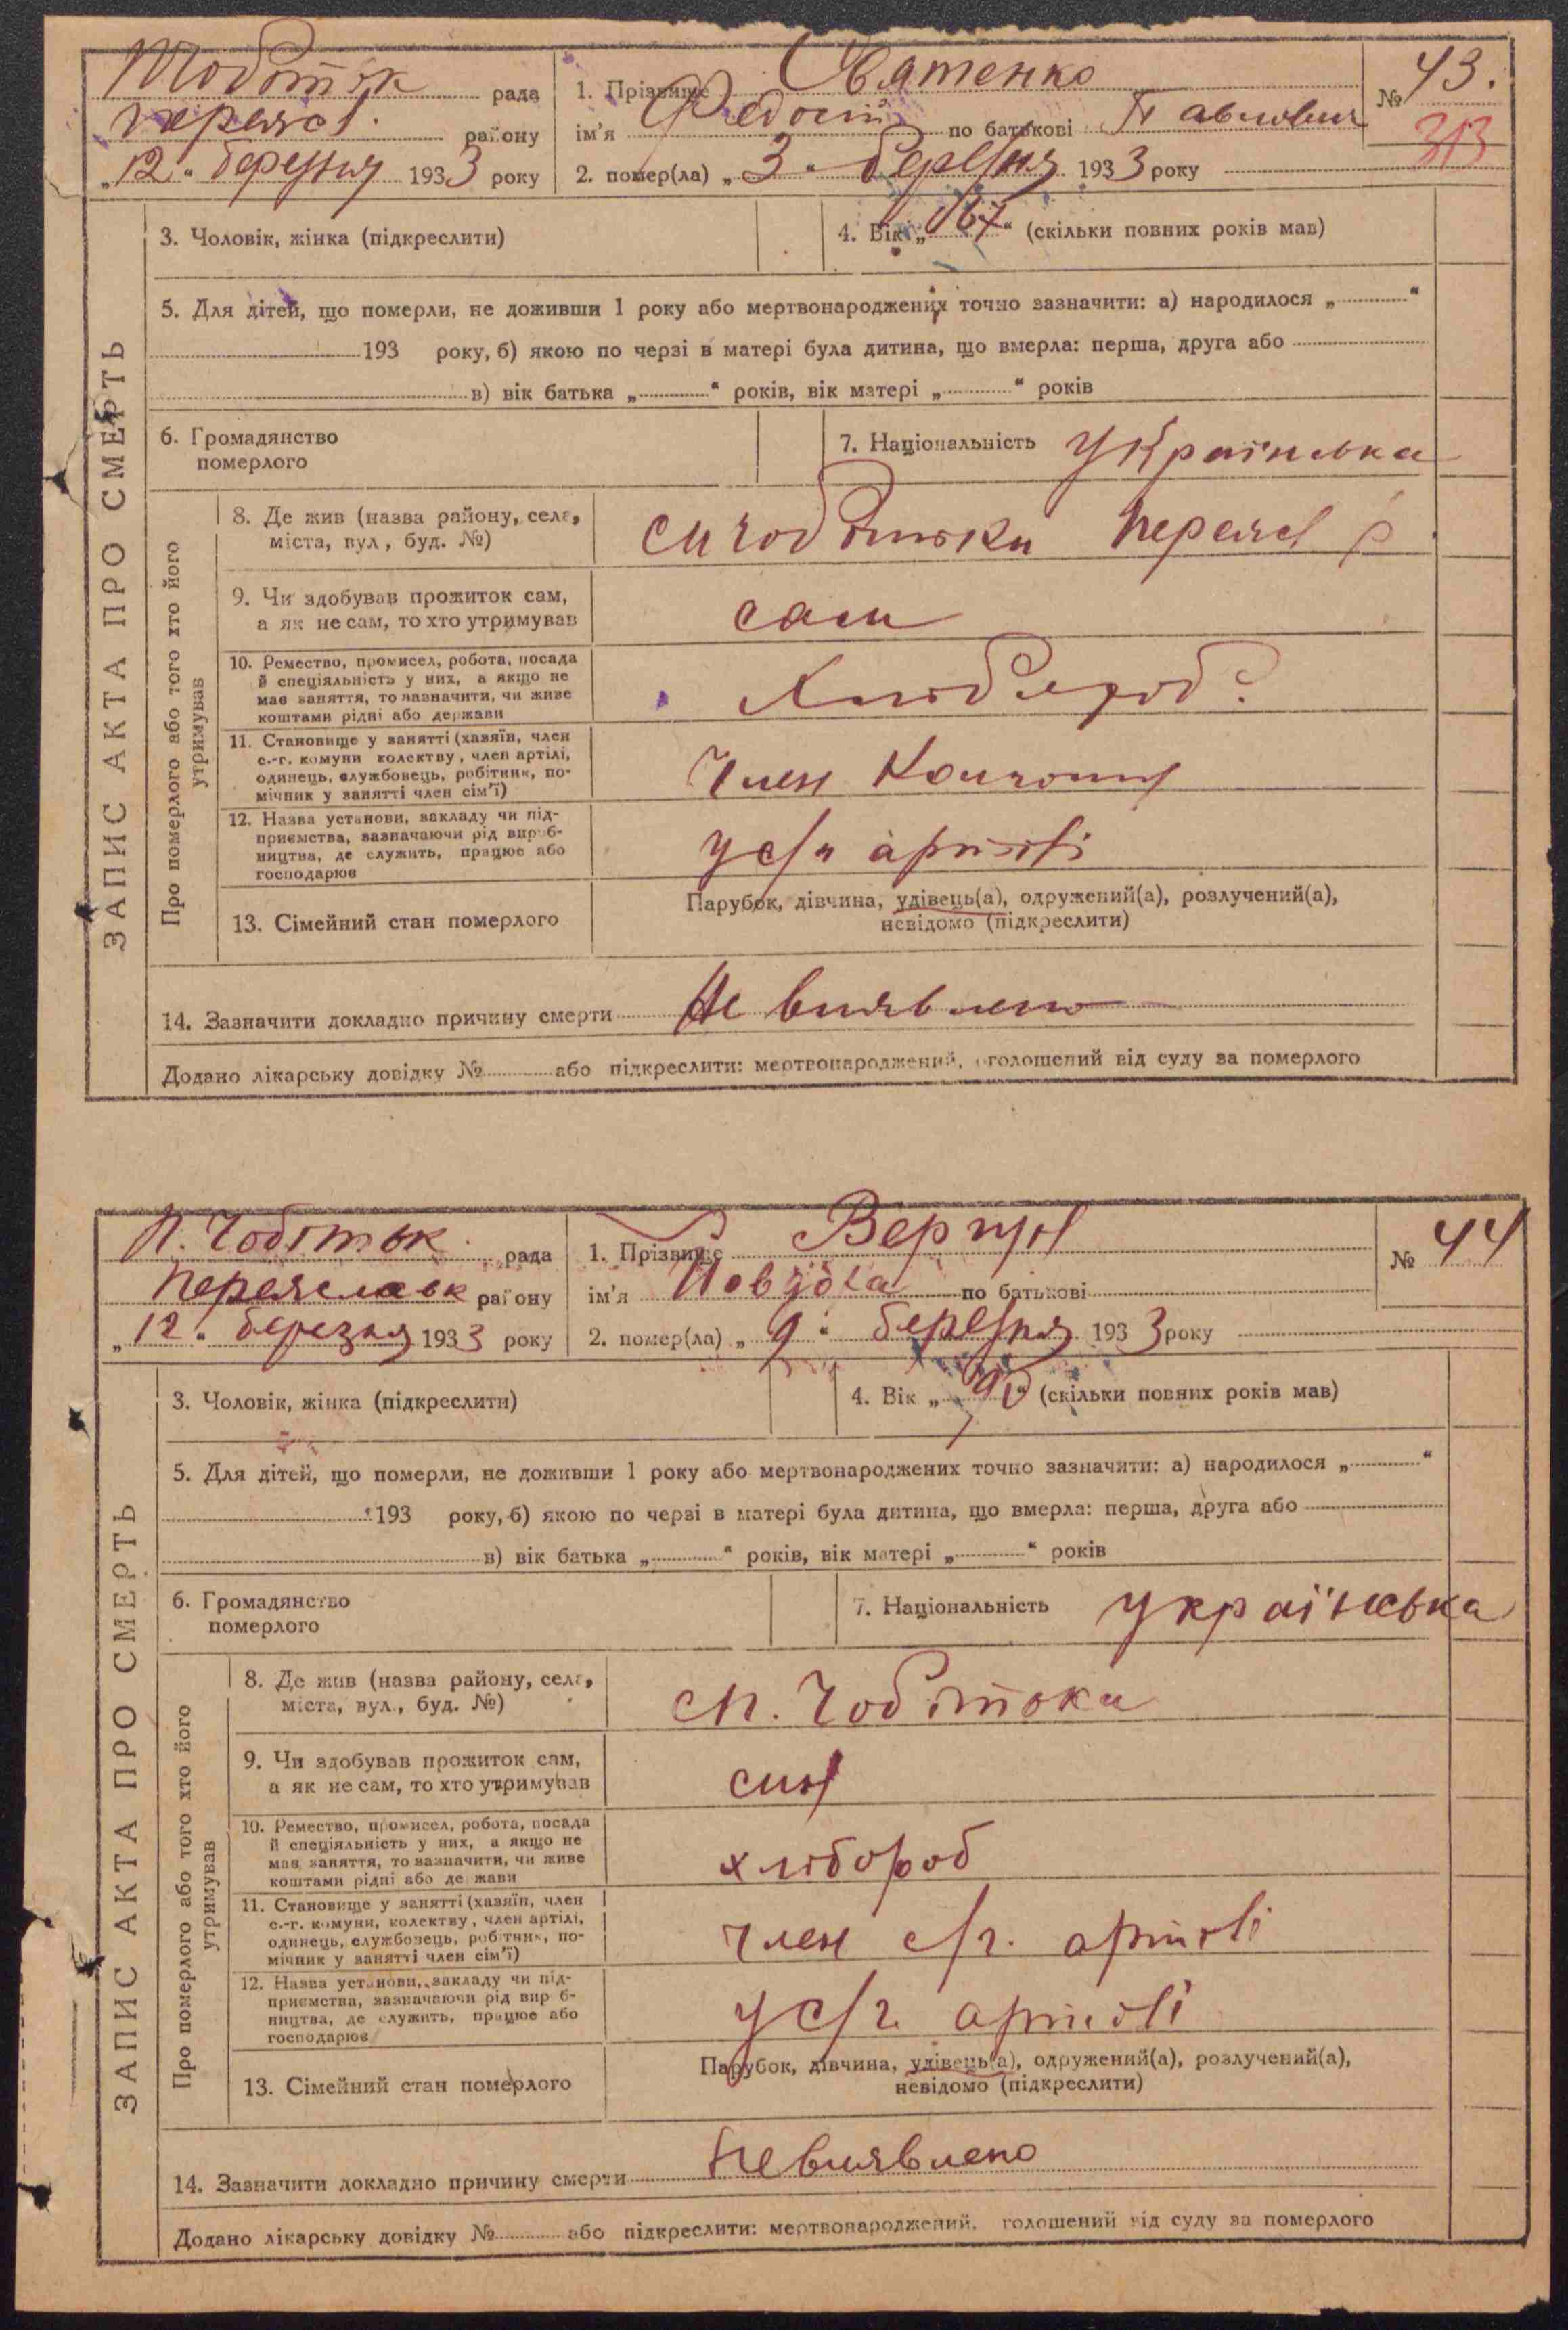 рада
району
„12“ березня 1933 року
1. Прізвище Святенко
ім'я Федосій по батькові Павлович
2. помер(ла) „3“ березня 1933 року
№ 43.
313
ЗАПИС АКТА ПРО СМЕРТЬ
3. Чоловік, жінка (підкреслити)
4. Вік „67“ (скільки повних років мав)
5. Для дітей, що померли, не доживши 1 року або мертвонароджених точно зазначити: а) народилося „ “
193 року, б) якою по черзі в матері була дитина, що вмерла: перша, друга або
в) вік батька „ “ років, вік матері „ “ років
6. Громадянство
померлого
7. Національність Українська
Про померлого або того хто його
утримував
8. Де жив (назва району, села,
міста, вул, буд. №)
9. Чи здобував прожиток сам,
а як не сам, то хто утримував
сам
10. Ремество, промисел, робота, посада
й спеціяльність у них, а якщо не
має заняття, то зазначити, чи живе
коштами рідні або держави
11. Становище у занятті (хазяїн, член
с.-г. комуни колектву, член артілі,
одинець, службовець, робітник, по-
мічник у занятті член сім'ї)
Член
12. Назва установи, закладу чи під-
приємства, зазначаючи рід вироб-
ництва, де служить, працює або
господарює
у с/г артілі
13. Сімейний стан померлого
Парубок, дівчина, удівець(а), одружений(а), розлучений(а),
невідомо (підкреслити)
14. Зазначити докладно причину смерти Не виявлено
Додано лікарську довідку № або підкреслити: мертвонароджений, оголошений від суду за померлого
П. Чобітьк. рада
Переяславськ району
„12“ березня 1933 року
1. Прізвище Вергун
ім'я по батькові
2. помер(ла) „9“ березня 1933 року
№ 44
ЗАПИС АКТА ПРО СМЕРТЬ
3. Чоловік, жінка (підкреслити)
4. Вік „ “ (скільки повних років мав)
5. Для дітей, що померли, не доживши 1 року або мертвонароджених точно зазначити: а) народилося „ “
193 року, б) якою по черзі в матері була дитина, що вмерла: перша, друга або
в) вік батька „ “ років, вік матері „ “ років
6. Громадянство
померлого
7. Національність українська
Про померлого або того хто його
утримував
8. Де жив (назва району, села,
міста, вул., буд. №)
9. Чи здобував прожиток сам,
а як не сам, то хто утримував
син
10. Ремество, промисел, робота, посада
й спеціяльність у них, а якщо не
має заняття, то зазначити, чи живе
коштами рідні або держави
хлібороб
11. Становище у занятті (хазяїн, член
с.-г. комуни, колектву, член артілі,
одинець, службовець, робітник, по-
мічник у занятті член сім'ї)
член с/г. артілі
12. Назва установи, закладу чи під-
приємства, зазначаючи рід вироб-
ництва, де служить, працює або
господарює
у с/г артілі
13. Сімейний стан померлого
Парубок, дівчина, удівець(а), одружений(а), розлучений(а),
невідомо (підкреслити)
14. Зазначити докладно причину смерти Невиявлено
Додано лікарську довідку № або підкреслити: мертвонароджений, оголошений від суду за померлого